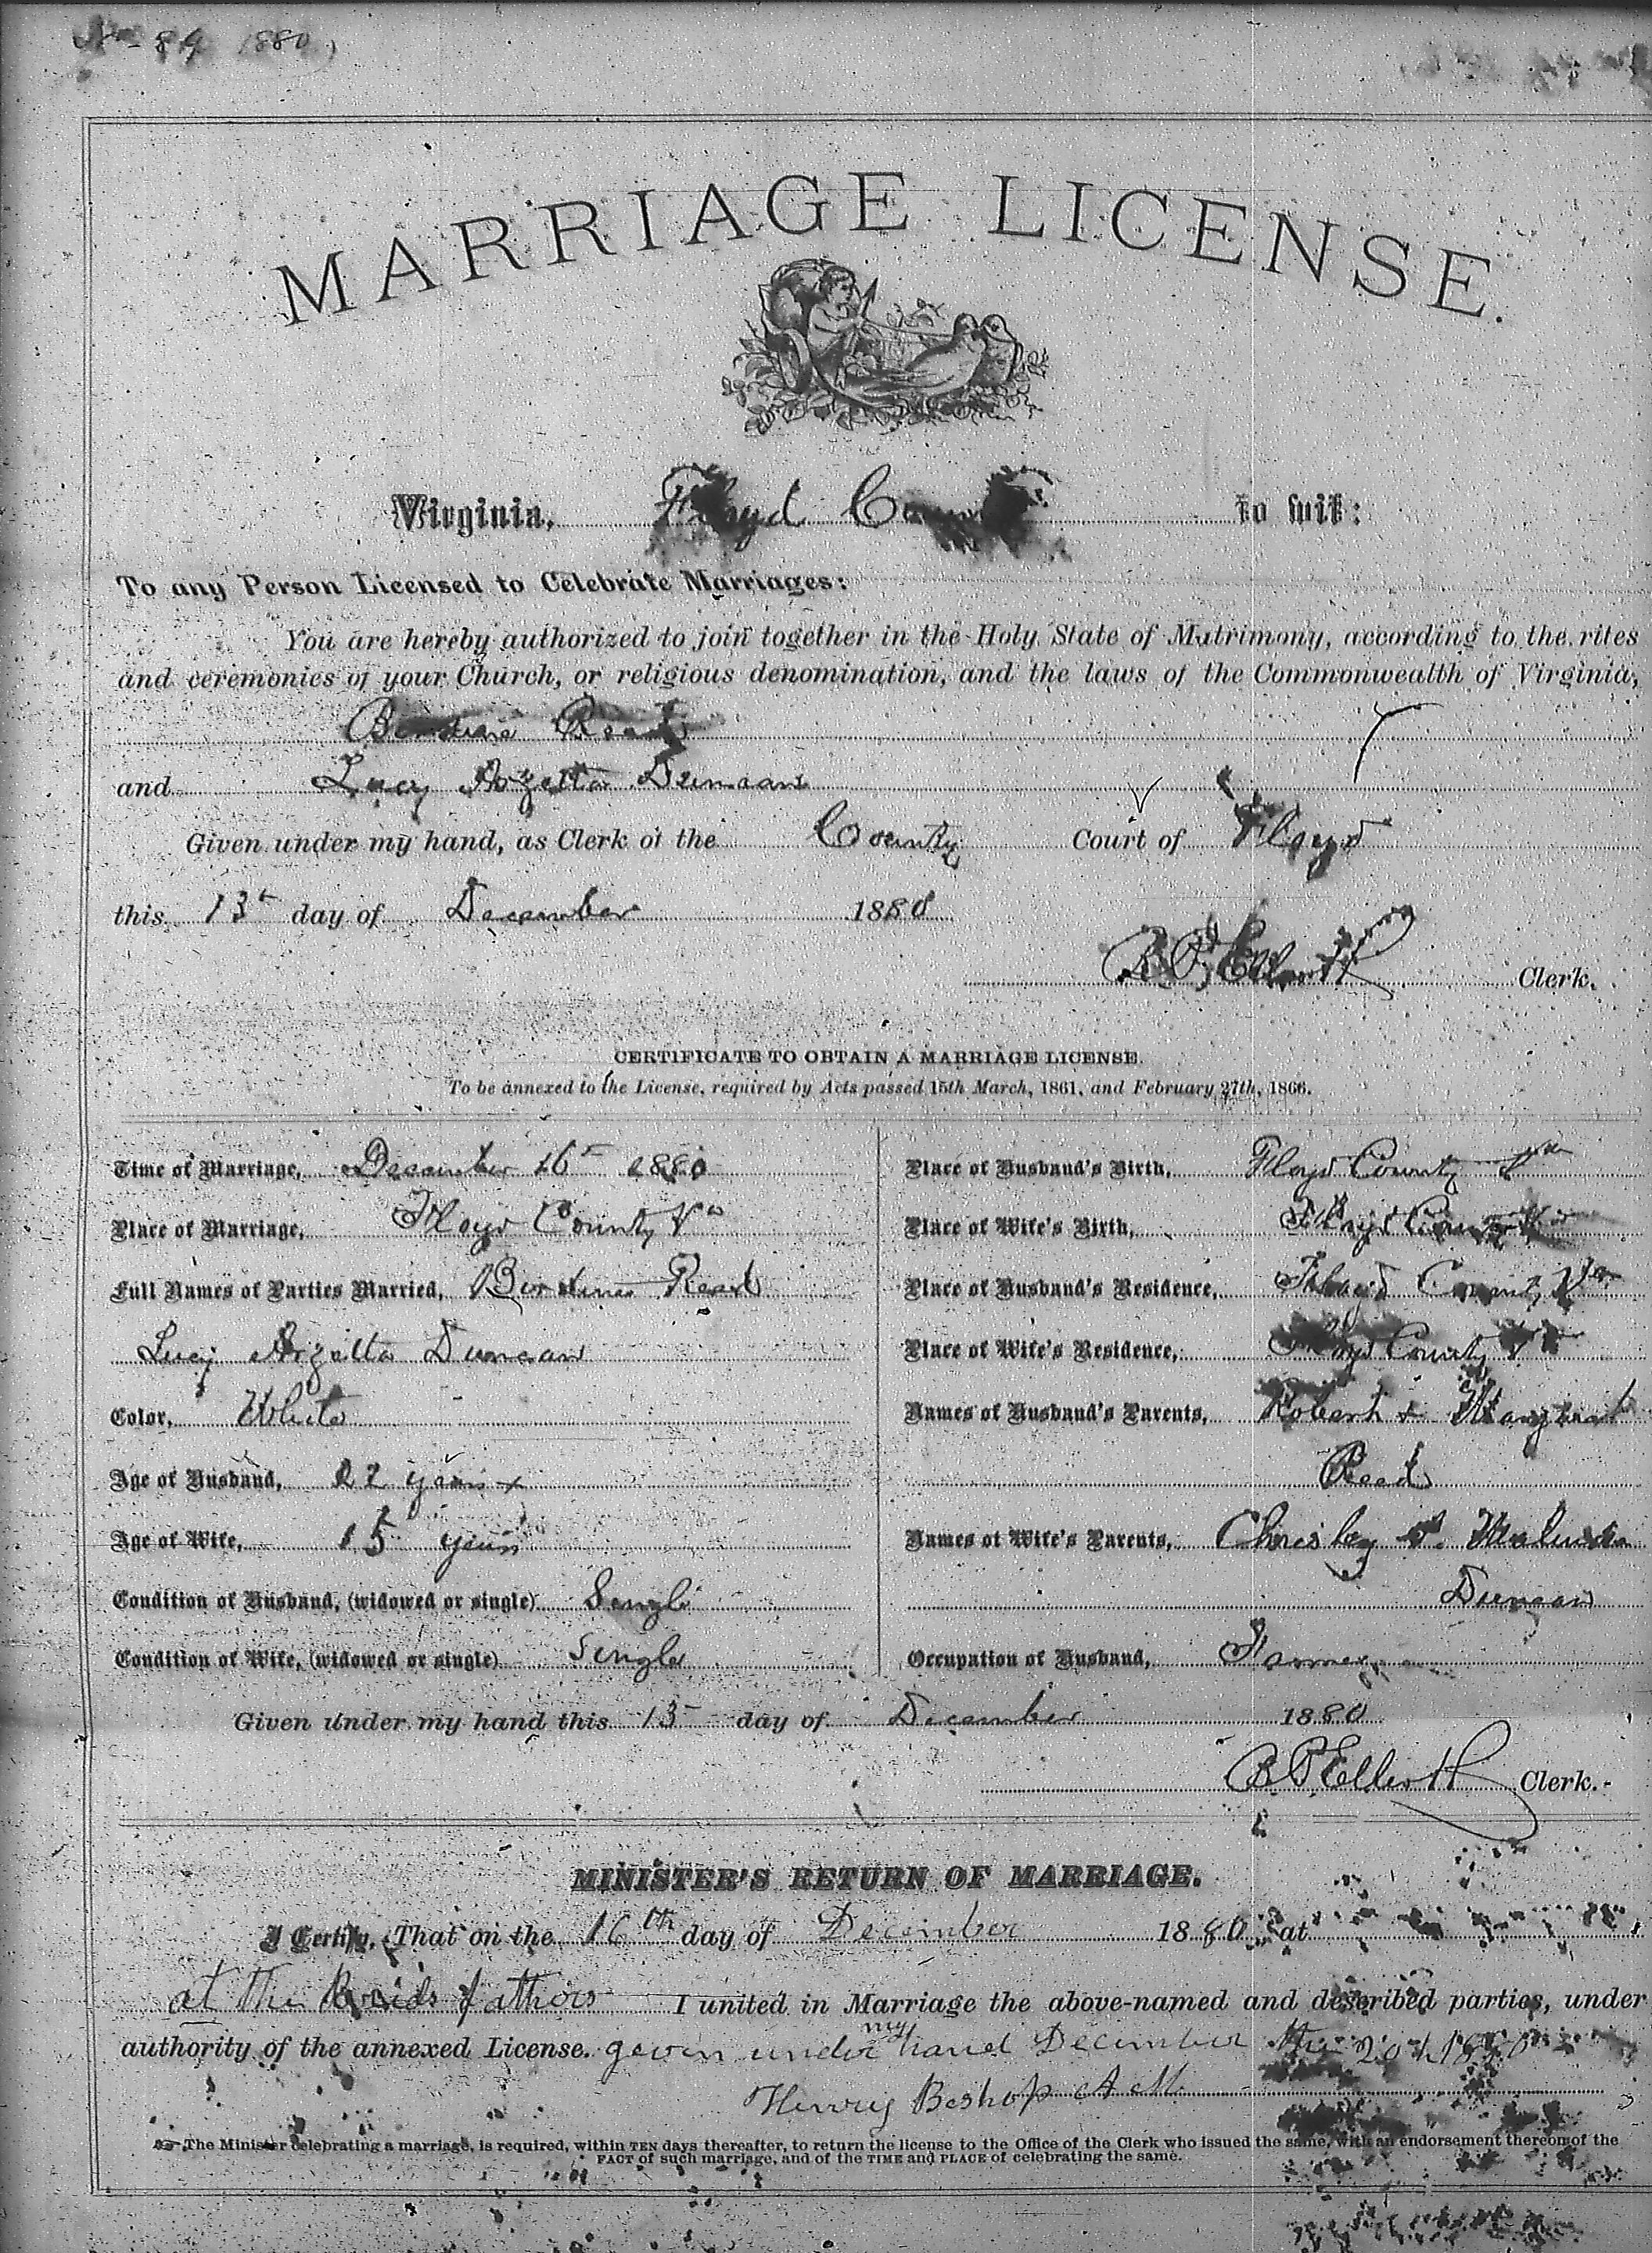 No 89 1880
MARRIAGE LICENSE.
Virginia, Floyd County to wit:
To any Person Licensed to Celebrate Marriages:
You are hereby authorized to join together in the Holy State of Matrimony, according to the rites
and ceremonies of your Church, or religious denomination, and the laws of the Commonwealth of Virginia,
Read
and Lucy Arzetta Duncan
Given under my hand, as Clerk of the County Court of Floyd
this 13th day of December 1880
B P Elliott Clerk.
CERTIFICATE TO OBTAIN A MARRIAGE LICENSE.
To be annexed to the License, required by Acts passed 15th March, 1861, and February 27th, 1866.
Time of Marriage, December 16th 1880
Place of Marriage, Floyd County Va
Full Names of Parties Married, Read
Lucy Arzetta Duncan
Color, White
Age of Husband, 22 years
Age of Wife, 15 years
Condition of Husband, (widowed or single) Single
Condition of Wife, (widowed or single) Single
Place of Husband's Birth, Floyd County Va
Place of Wife's Birth, Floyd County Va
Place of Husband's Residence, Floyd County Va
Place of Wife's Residence, Floyd County Va
Names of Husband's Parents, Robert & Margaret
Read
Names of Wife's Parents, Chrisley & Malinda
Duncan
Occupation of Husband, Farmer
Given under my hand this 13 day of December 1880
B P Elliott Clerk.
MINISTER'S RETURN OF MARRIAGE.
I Certify, That on the 16th day of December 1880, at
at the Brids fathers I united in Marriage the above-named and described parties, under
authority of the annexed License. geven under my hand December the 20th 1880
Henry Bishop
The Minister celebrating a marriage, is required, within TEN days thereafter, to return the license to the Office of the Clerk who issued the same, with an endorsement thereon of the
FACT of such marriage, and of the TIME and PLACE of celebrating the same.